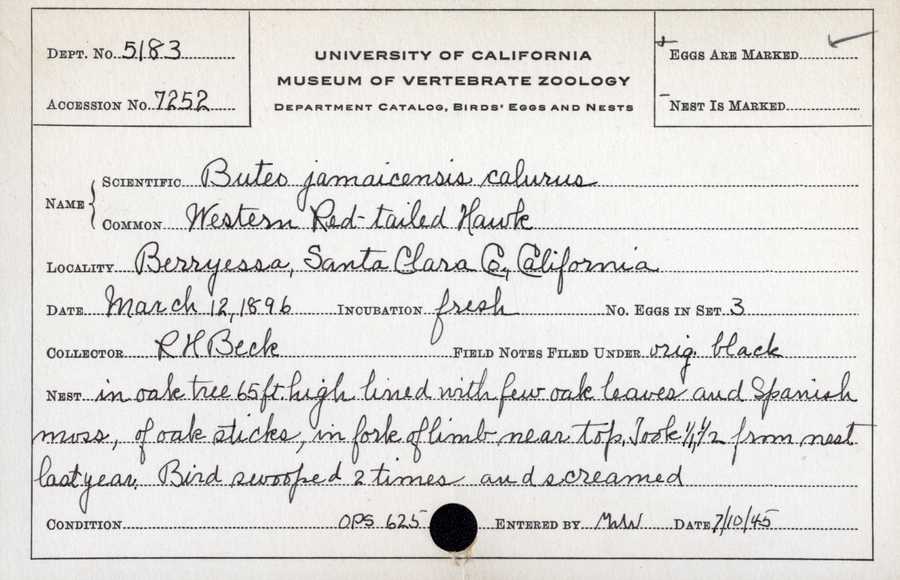 Dept. No. 5183
Accession No. 7252
UNIVERSITY OF CALIFORNIA
MUSEUM OF VERTEBRATE ZOOLOGY
Department Catalog, Birds' Eggs and Nests
Eggs Are Marked ✓
Nest Is Marked
Name
Scientific Buteo jamaicensis calurus
Common Western Red-tailed Hawk
Locality Berryessa, Santa Clara Co., California
Date March 12, 1896 Incubation fresh No. Eggs in Set 3
Collector R H Beck Field Notes Filed Under orig. black
Nest in oak tree 65 ft. high lined with few oak leaves and Spanish
moss, of oak sticks, in fork of limb near top. Took from nest
last year. Bird swooped 2 times and screamed
Condition OPS 625 Entered by MWW Date 7/10/45